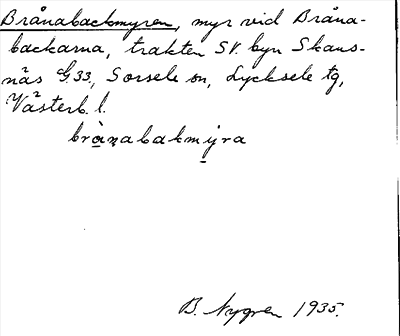 Brånabackmyren, myr vid Bråna-
backarna, trakten SV. byn Skans-
näs G.33, Sorsele sn, Lycksele tg,
Västerb. l.
brånabakmýra
B. Nygren 1935.